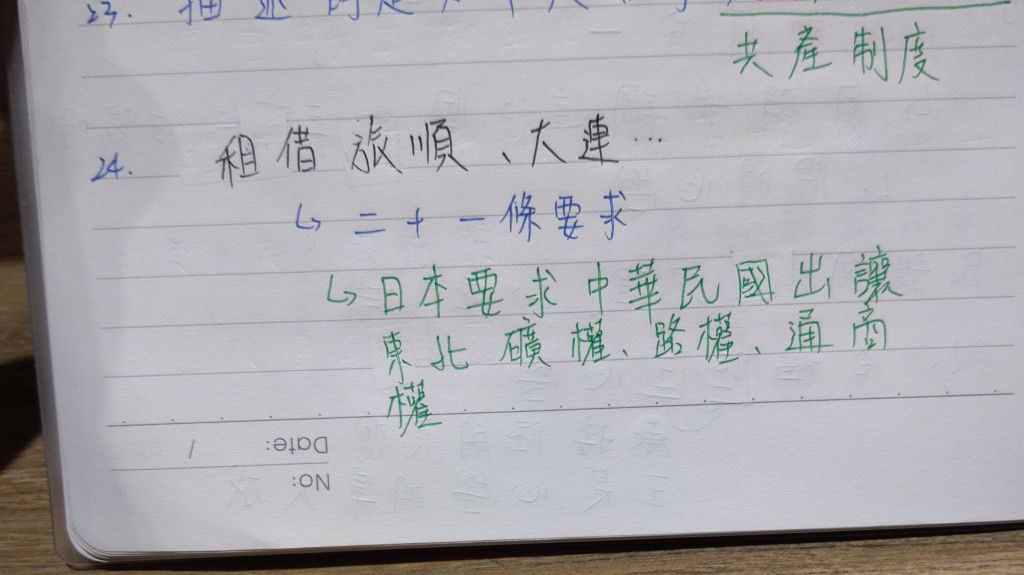 23. 描述的是
共產制度
24. 租借旅順、大連…
↳ 二十一條要求
↳ 日本要求中華民國出讓
東北礦權、路權、通商
權
Date: /
No: